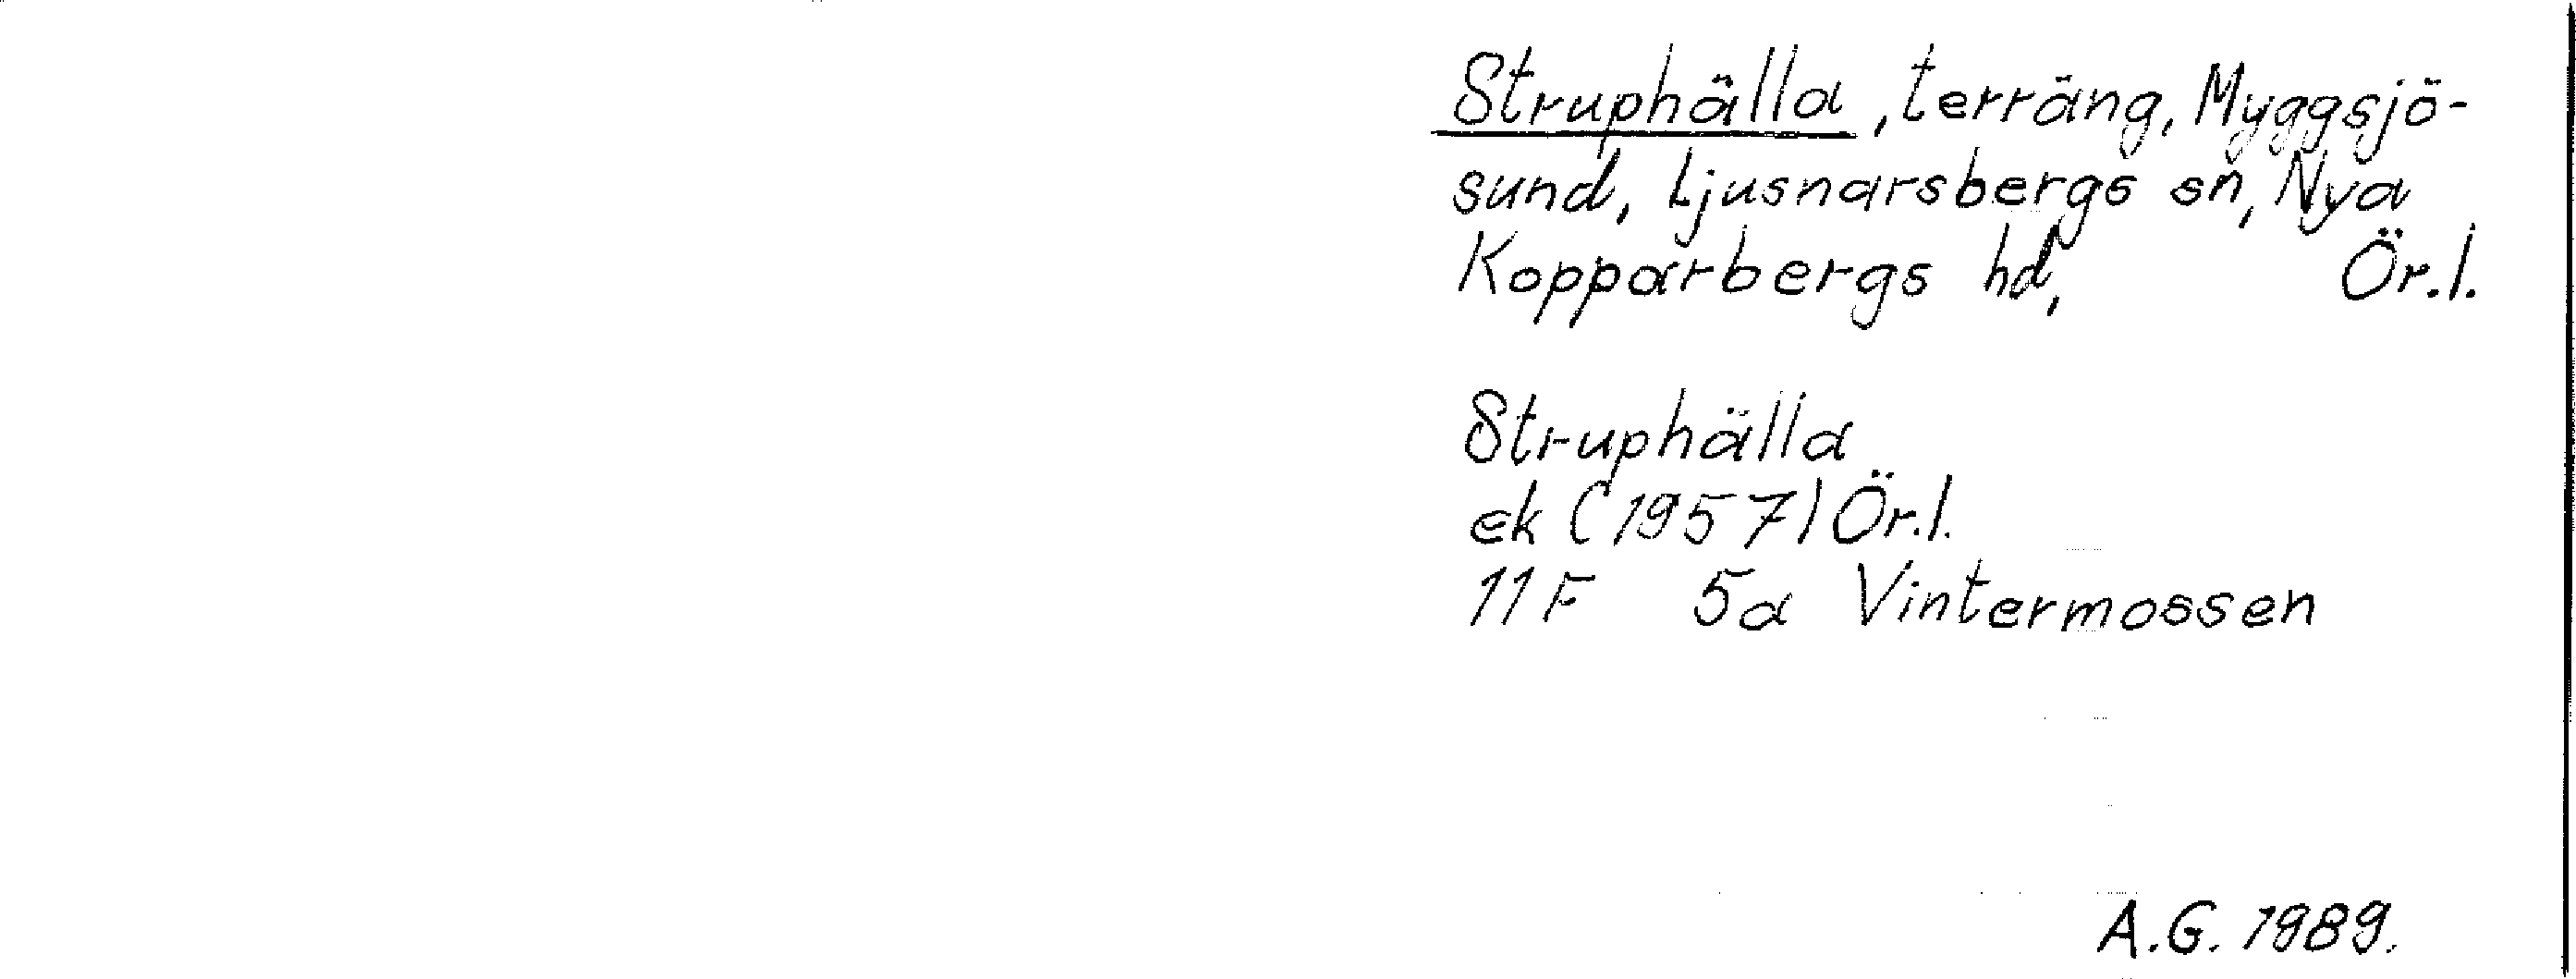 Struphälla, terräng, Myggsjö-
sund, Ljusnarsbergs sn, Nya
Kopparbergs hd, Ör.l.
Struphälla
ek (1957) Ör.l.
11F 5a Vintermossen
A.G. 1989.